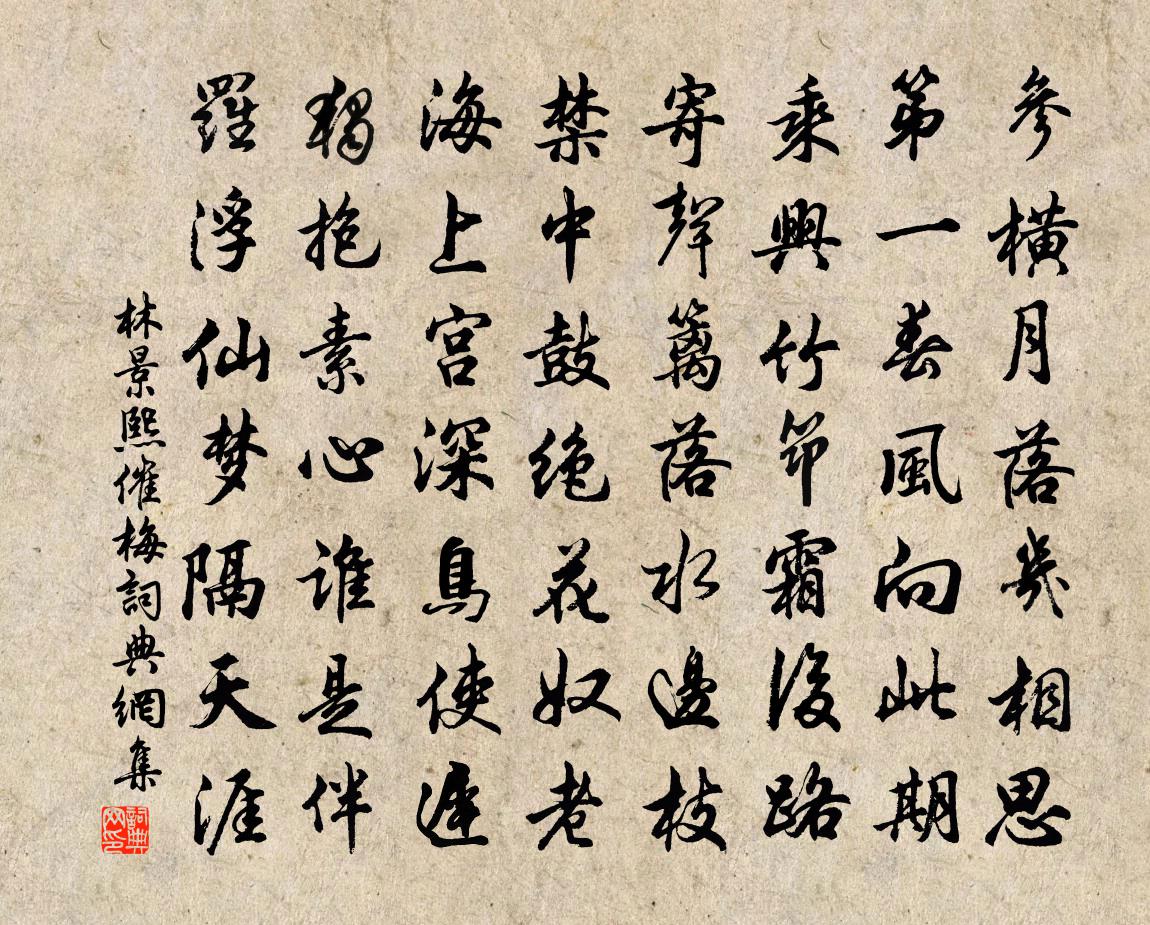 參橫月落幾相思
第一春風向此期
乘興竹笻霜後路
寄聲籬落水邊枝
禁中鼓絶花奴老
海上宫深鳥使遲
獨抱素心谁是伴
羅浮仙梦隔天涯
林景熙催梅詞典網集
詞典网印